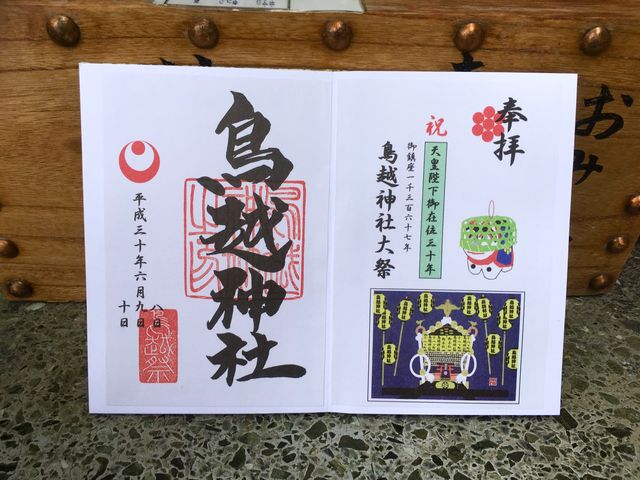 奉拝
祝
天皇陛下御在位三十年
御鎮座一千三百六十七年
鳥越神社大祭
鳥越神社
平成三十年六月九日
八日
十日
鳥越祭
おみ